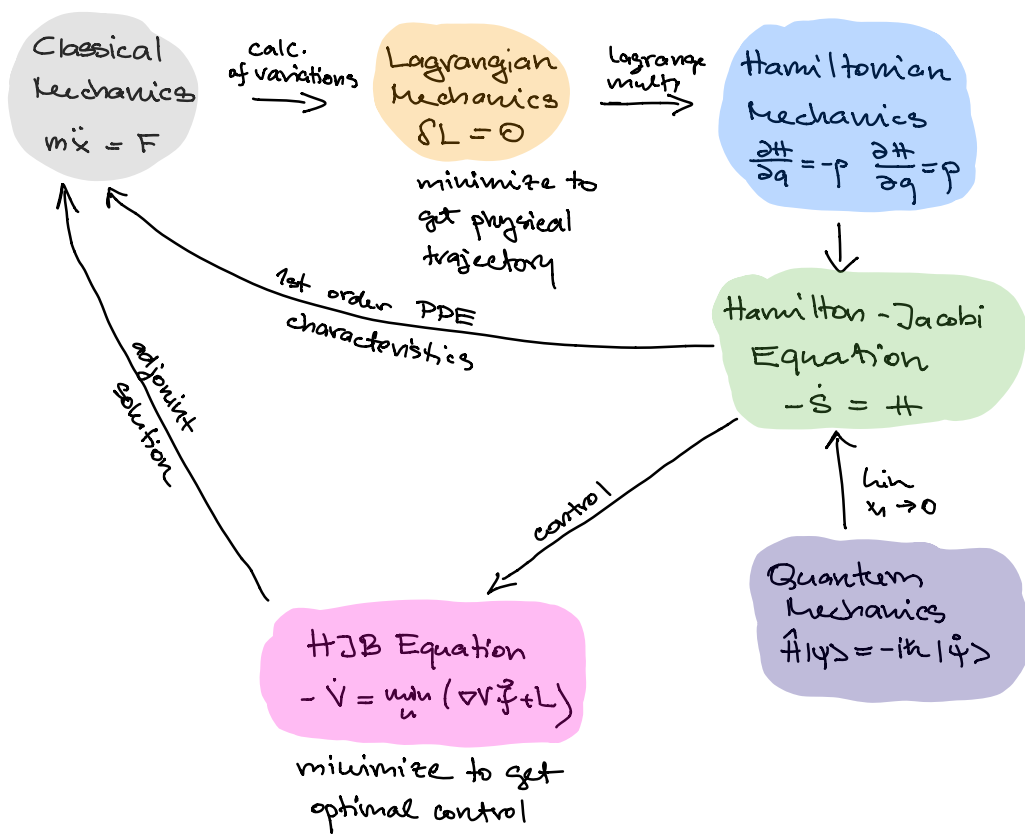 Classical
Mechanics
mẍ = F
calc.
of variations
Lagrangian
Mechanics
δL = 0
minimize to
get physical
trajectory
Lagrange
mult,
Hamiltonian
Mechanics
∂H/∂q = -p ∂H/∂q = p
1st order PDE
characteristics
Hamilton-Jacobi
Equation
-Ṡ = H
adjoint
solution
control
lim
ℏ→0
Quantum
Mechanics
Ĥ|ψ> = -iℏ|ψ̇>
HJB Equation
-V̇ = min (∇V f⃗ + L)
u
minimize to get
optimal control